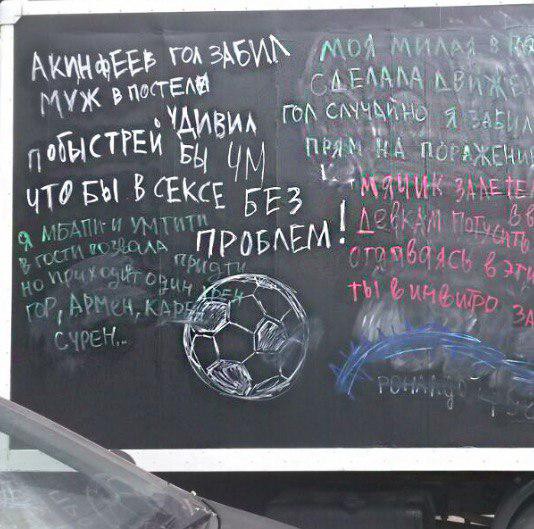 АКИНФЕЕВ ГОЛ ЗАБИЛ
МУЖ В ПОСТЕЛИ
УДИВИЛ
ПОБЫСТРЕЙ БЫ ЧМ
ЧТО БЫ В СЕКСЕ БЕЗ
ПРОБЛЕМ!
Я МБАПИ И УМТИТИ
В ГОСТИ ПОЗВАЛА ПРИДТИ
НО ПРИХОДЯТ ОДИН
ГОР, АРМЕН, КАРЕ
СУРЕН...
МОЯ МИЛАЯ В
СДЕЛАЛА ДВИЖЕ
ГОЛ СЛУЧАЙНО Я ЗАБИЛ
ПРЯМ НА ПОРАЖЕНИ
МЯЧИК ЗАЛЕТЕ
ДЕВКАМ
ОТДАВАЯСЬ В ЭТИ
ТЫ В ИНВИТРО ЗА
РОНАЛДО